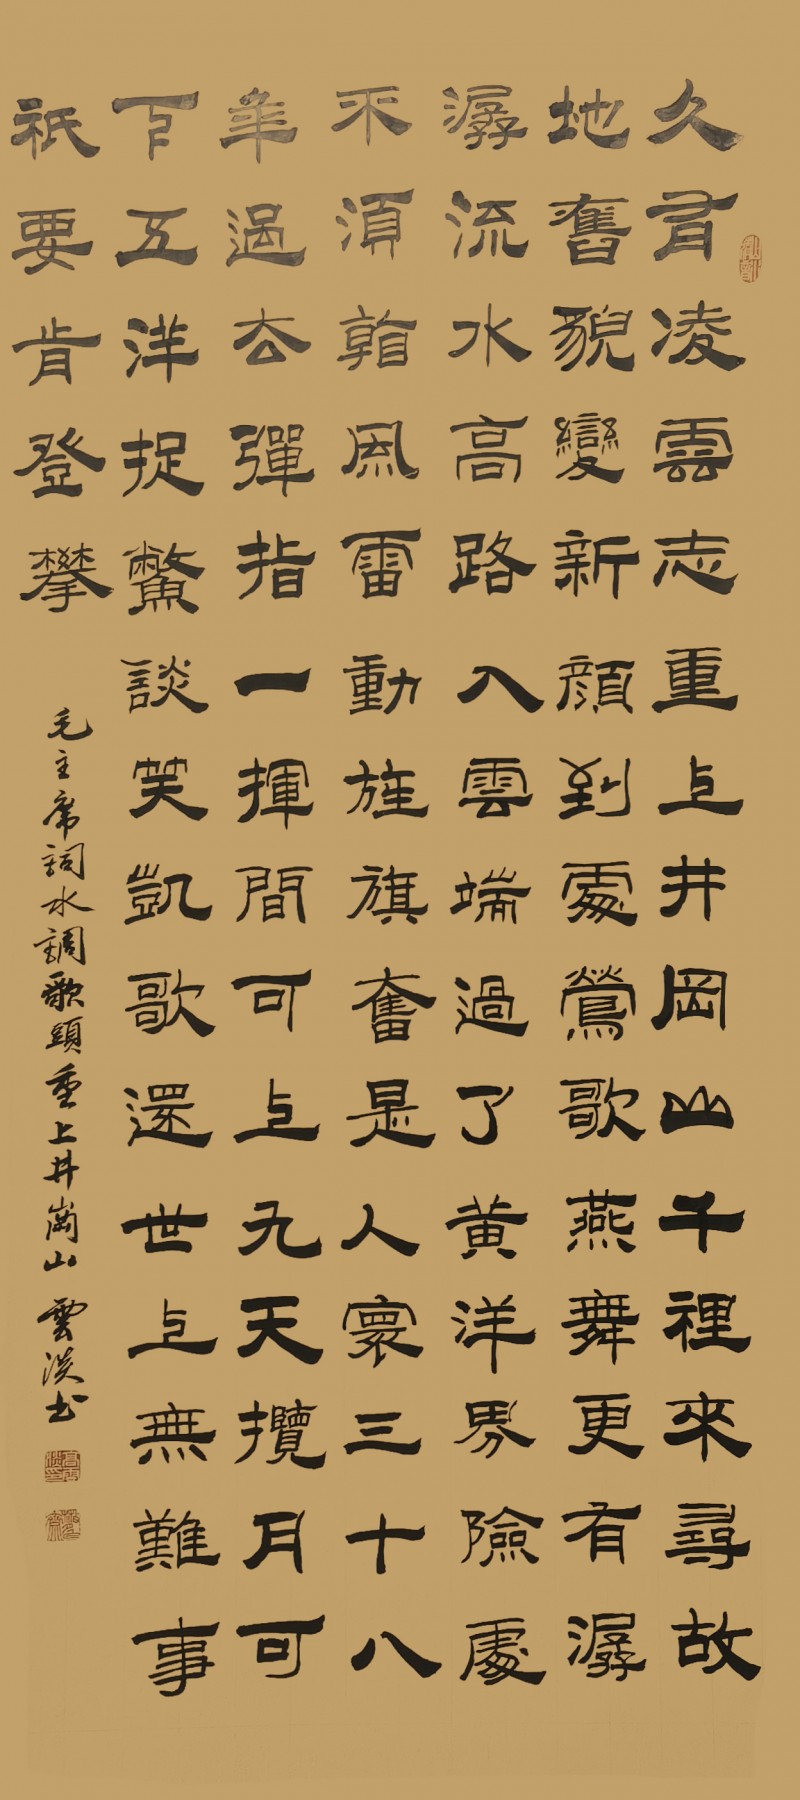 久有凌雲志重上井岡山千裡來尋故
地舊貌變新顏到處鶯歌燕舞更有潺
潺流水高路入雲端過了黃洋界險處
不須看風雷動旌旗奮是人寰三十八
年過去彈指一揮間可上九天攬月可
下五洋捉鱉談笑凱歌還世上無難事
祇要肯登攀
毛主席詞水調歌頭重上井崗山 雲淡书